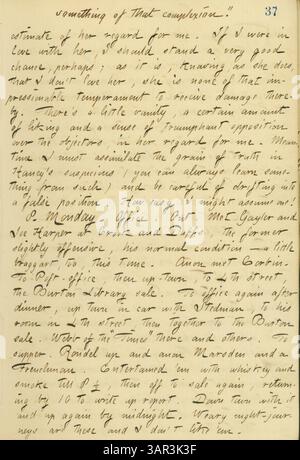 37
something of that complexion."
estimate of her regard for me. If I were in
love with her, I should stand a very good
chance, perhaps; as it is, knowing as she does
that I don't love her, she is none of that im-
pressionable temperament to receive damage there-
by. There's a little vanity, a certain amount
of liking and a sense of triumphant opposition
over the objectors, in her regard for me. Mean
time I must assimilate the grain of truth in
Haney's suspicions, (you can always learn some-
thing from such) and be careful of drifting into
a false position. How easy it might assume!
P. Monday. Office. Out. Met Gayler and
Joe Harper at Crook and Duff's, the former
slightly offensive, his normal condition — a little
braggart too, this time. Anon met Corbin.
To Post-office then up-town, to 4th street,
the Burton Library sale. To office again after
dinner, up town in car with Stedman, to his
room in 4th street then together to the Burton
sale. Webb of the Times there and others. To
supper. Rondel up and anon Marsden and a
Frenchman. Entertained em with whiskey and
smoke till P ½, then off to sale again, return-
ing by 10 to write up report. Down town with it
and up again by midnight. Weary night-jour-
neys are these and I don't like em.
alamy
Image ID: 3AR3K3F
www.alamy.com